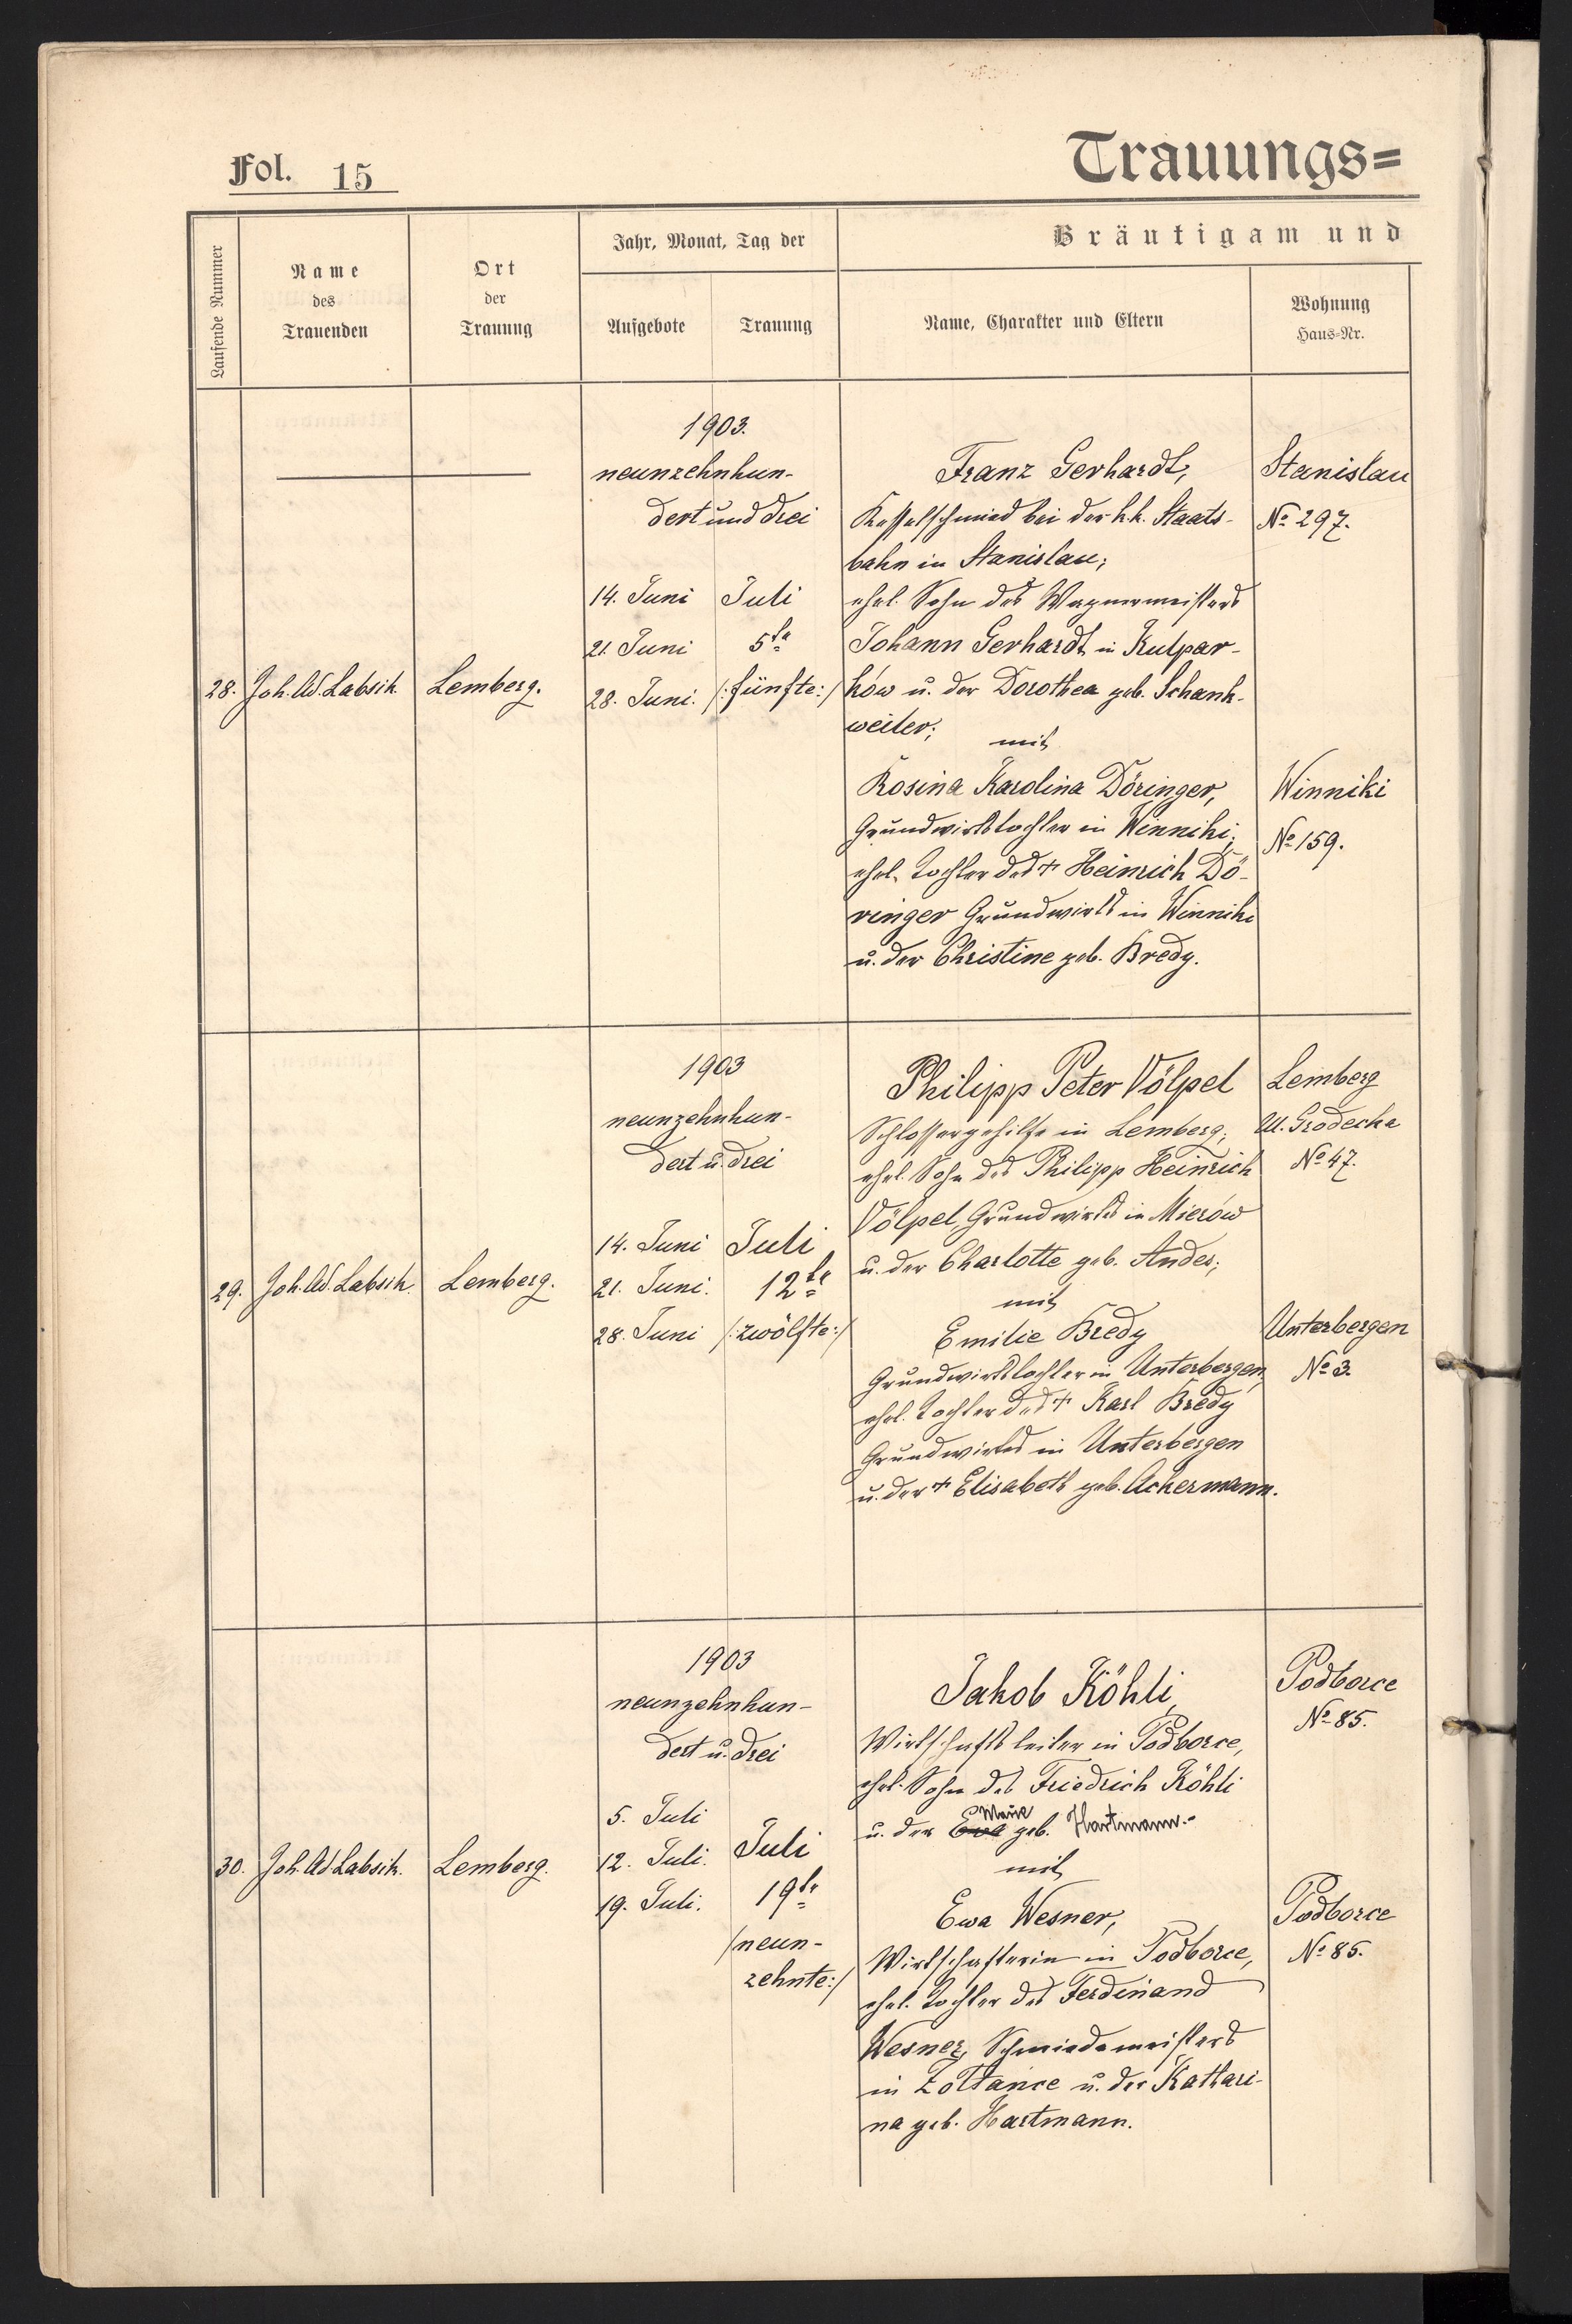 Fol. 15
Trauungs=
Laufende Nummer
Name
des
Trauenden
Ort
der
Trauung
Jahr, Monat, Tag der
Aufgebote
Trauung
Bräutigam und
Name, Charakter und Eltern
Wohnung
Haus-Nr.
28.
Joh. Ad. Labsik
Lemberg.
1903.
neunzehnhun-
dert und drei
14. Juni
21. Juni
28. Juni.
Juli
5te
/:fünfte:/
Franz Gerhardt,
Kesselschmied bei der k.k. Staats-
bahn in Stanislau;
ehel. Sohn des Wagnermeisters
Johann Gerhardt in Kulpar-
ków u. der Dorothea geb. Schank-
weiler;
mit
Rosina Karolina Döringer,
Grundwirtstochter in Winniki;
ehel. Tochter des + Heinrich Dö-
ringer Grundwirts in Winniki
u. der Christine geb. Bredy.
Stanislau
No 297.
Winniki
No 159.
29.
Joh. Ad. Labsik.
Lemberg.
1903
neunzehnhun-
dert u. drei
14. Juni
21. Juni.
28. Juni
Juli
12te
/:zwölfte:/
Philipp Peter Völpel
Schlossergehilfe in Lemberg;
ehel. Sohn des Philipp Heinrich
Völpel, Grundwirts in Mierów
u. der Charlotte geb. Andes;
mit
Emilie Bredy
Grundwirtstochter in Unterbergen,
ehel. Tochter des + Karl Bredy
Grundwirts in Unterbergen
u. der + Elisabeth geb. Ackermann.
Lemberg
Ul. Grodecka
No 47.
Unterbergen
No 3.
30.
Joh. Ad Labsik.
Lemberg.
1903
neunzehnhun-
dert u. drei
5. Juli
12. Juli.
19. Juli.
Juli
19te
/neun-
zehnte:/
Jakob Köhli,
Wirtschaftsleiter in Podborce,
ehel. Sohn des Friedrich Köhli
u. der Ewa geb. Hartmann.-
mit
Ewa Wesner,
Wirtschafterin in Podborce,
ehel. Tochter des Ferdinand
Wesner, Schmiedemeisters
in Żółtańce u. der Kathari-
na geb. Hartmann.
Podborce
No 85.
Podborce
No 85.